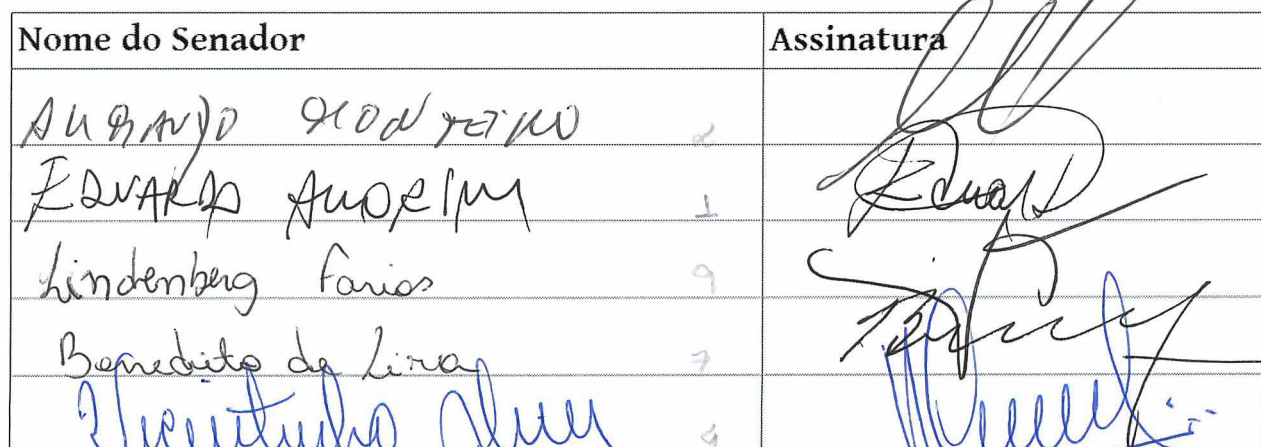 Nome do Senador Assinatura
ARMANDO MONTEIRO 2
EDUARDO AMORIM 1 Eduardo
Lindenberg Farias 9
Benedito de Lira 7
Vicentinho Alves 9